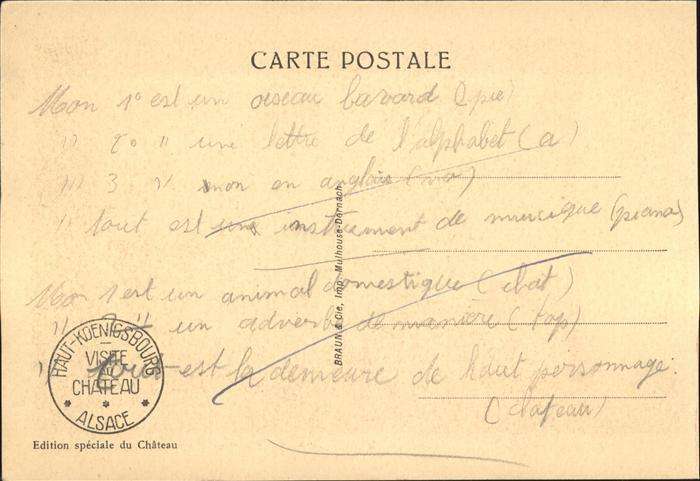 CARTE POSTALE
Mon 1° est un oiseau bavard (pie)
" 2° " une lettre de l'alphabet (a)
" 3 " non en anglais (no)
" tout est un instrument de musique (piano)
Mon 1 est un animal domestique (chat)
" 2 " un adverbe de manière (top)
" tout est la demeure de haut personnage.
(chateau)
BRAUN & Cie, Imp. Mulhouse-Dornach
HAUT-KOENIGSBOURG
VISITE
DU
CHÂTEAU
ALSACE
Edition spéciale du Château